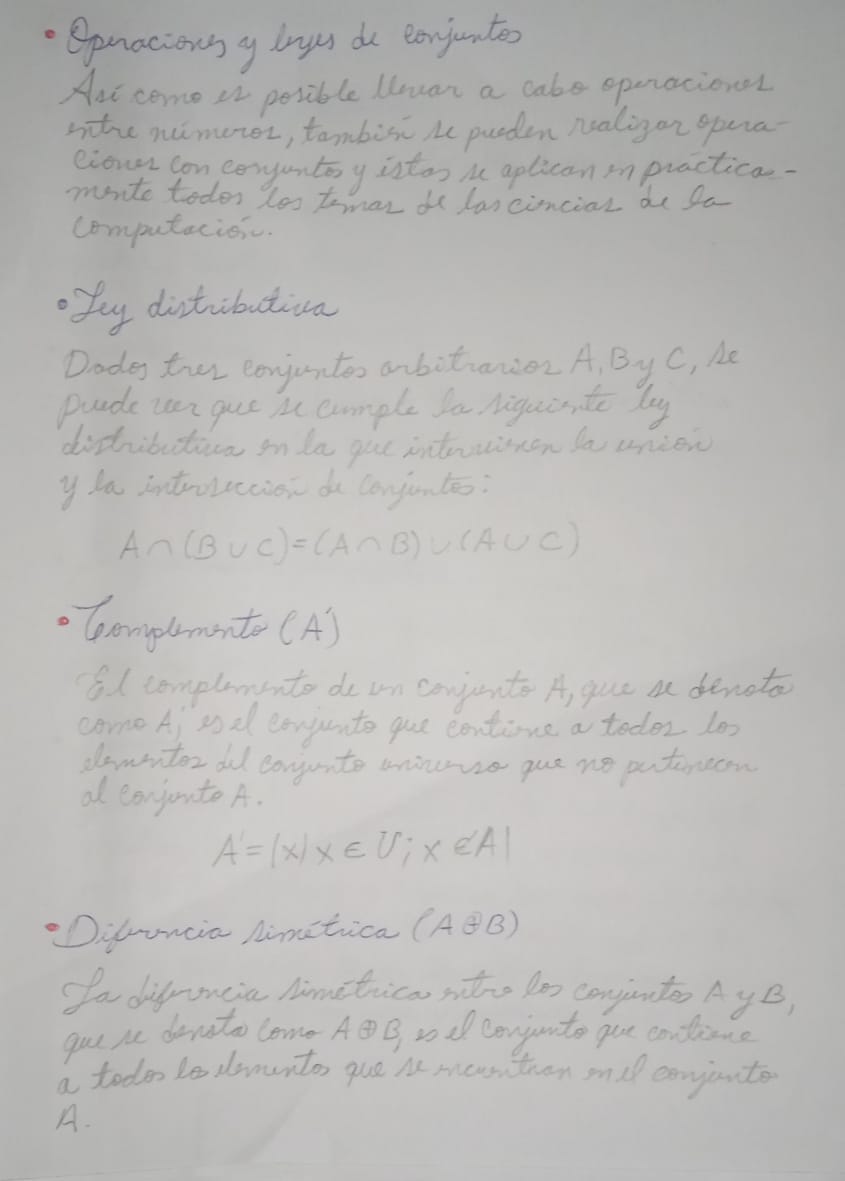 • Operaciones y leyes de conjuntos
Así como es posible llevar a cabo operaciones
entre números, también se pueden realizar opera-
ciones con conjuntos y éstas se aplican en práctica-
mente todos los temas de las ciencias de la
computación.
• Ley distributiva
Dados tres conjuntos arbitrarios A, B y C, se
puede ver que se cumple la siguiente ley
distributiva en la que intervienen la unión
y la intersección de conjuntos:
A∩(B∪C)=(A∩B)∪(A∪C)
• Complemento (A')
El complemento de un conjunto A, que se denota
como A', es el conjunto que contiene a todos los
elementos del conjunto universo que no pertenecen
al conjunto A.
A'=|x|x∈U; x∉A|
• Diferencia simétrica (A⊕B)
La diferencia simétrica entre los conjuntos A y B,
que se denota como A⊕B, es el conjunto que contiene
a todos los elementos que se encuentran en el conjunto
A.